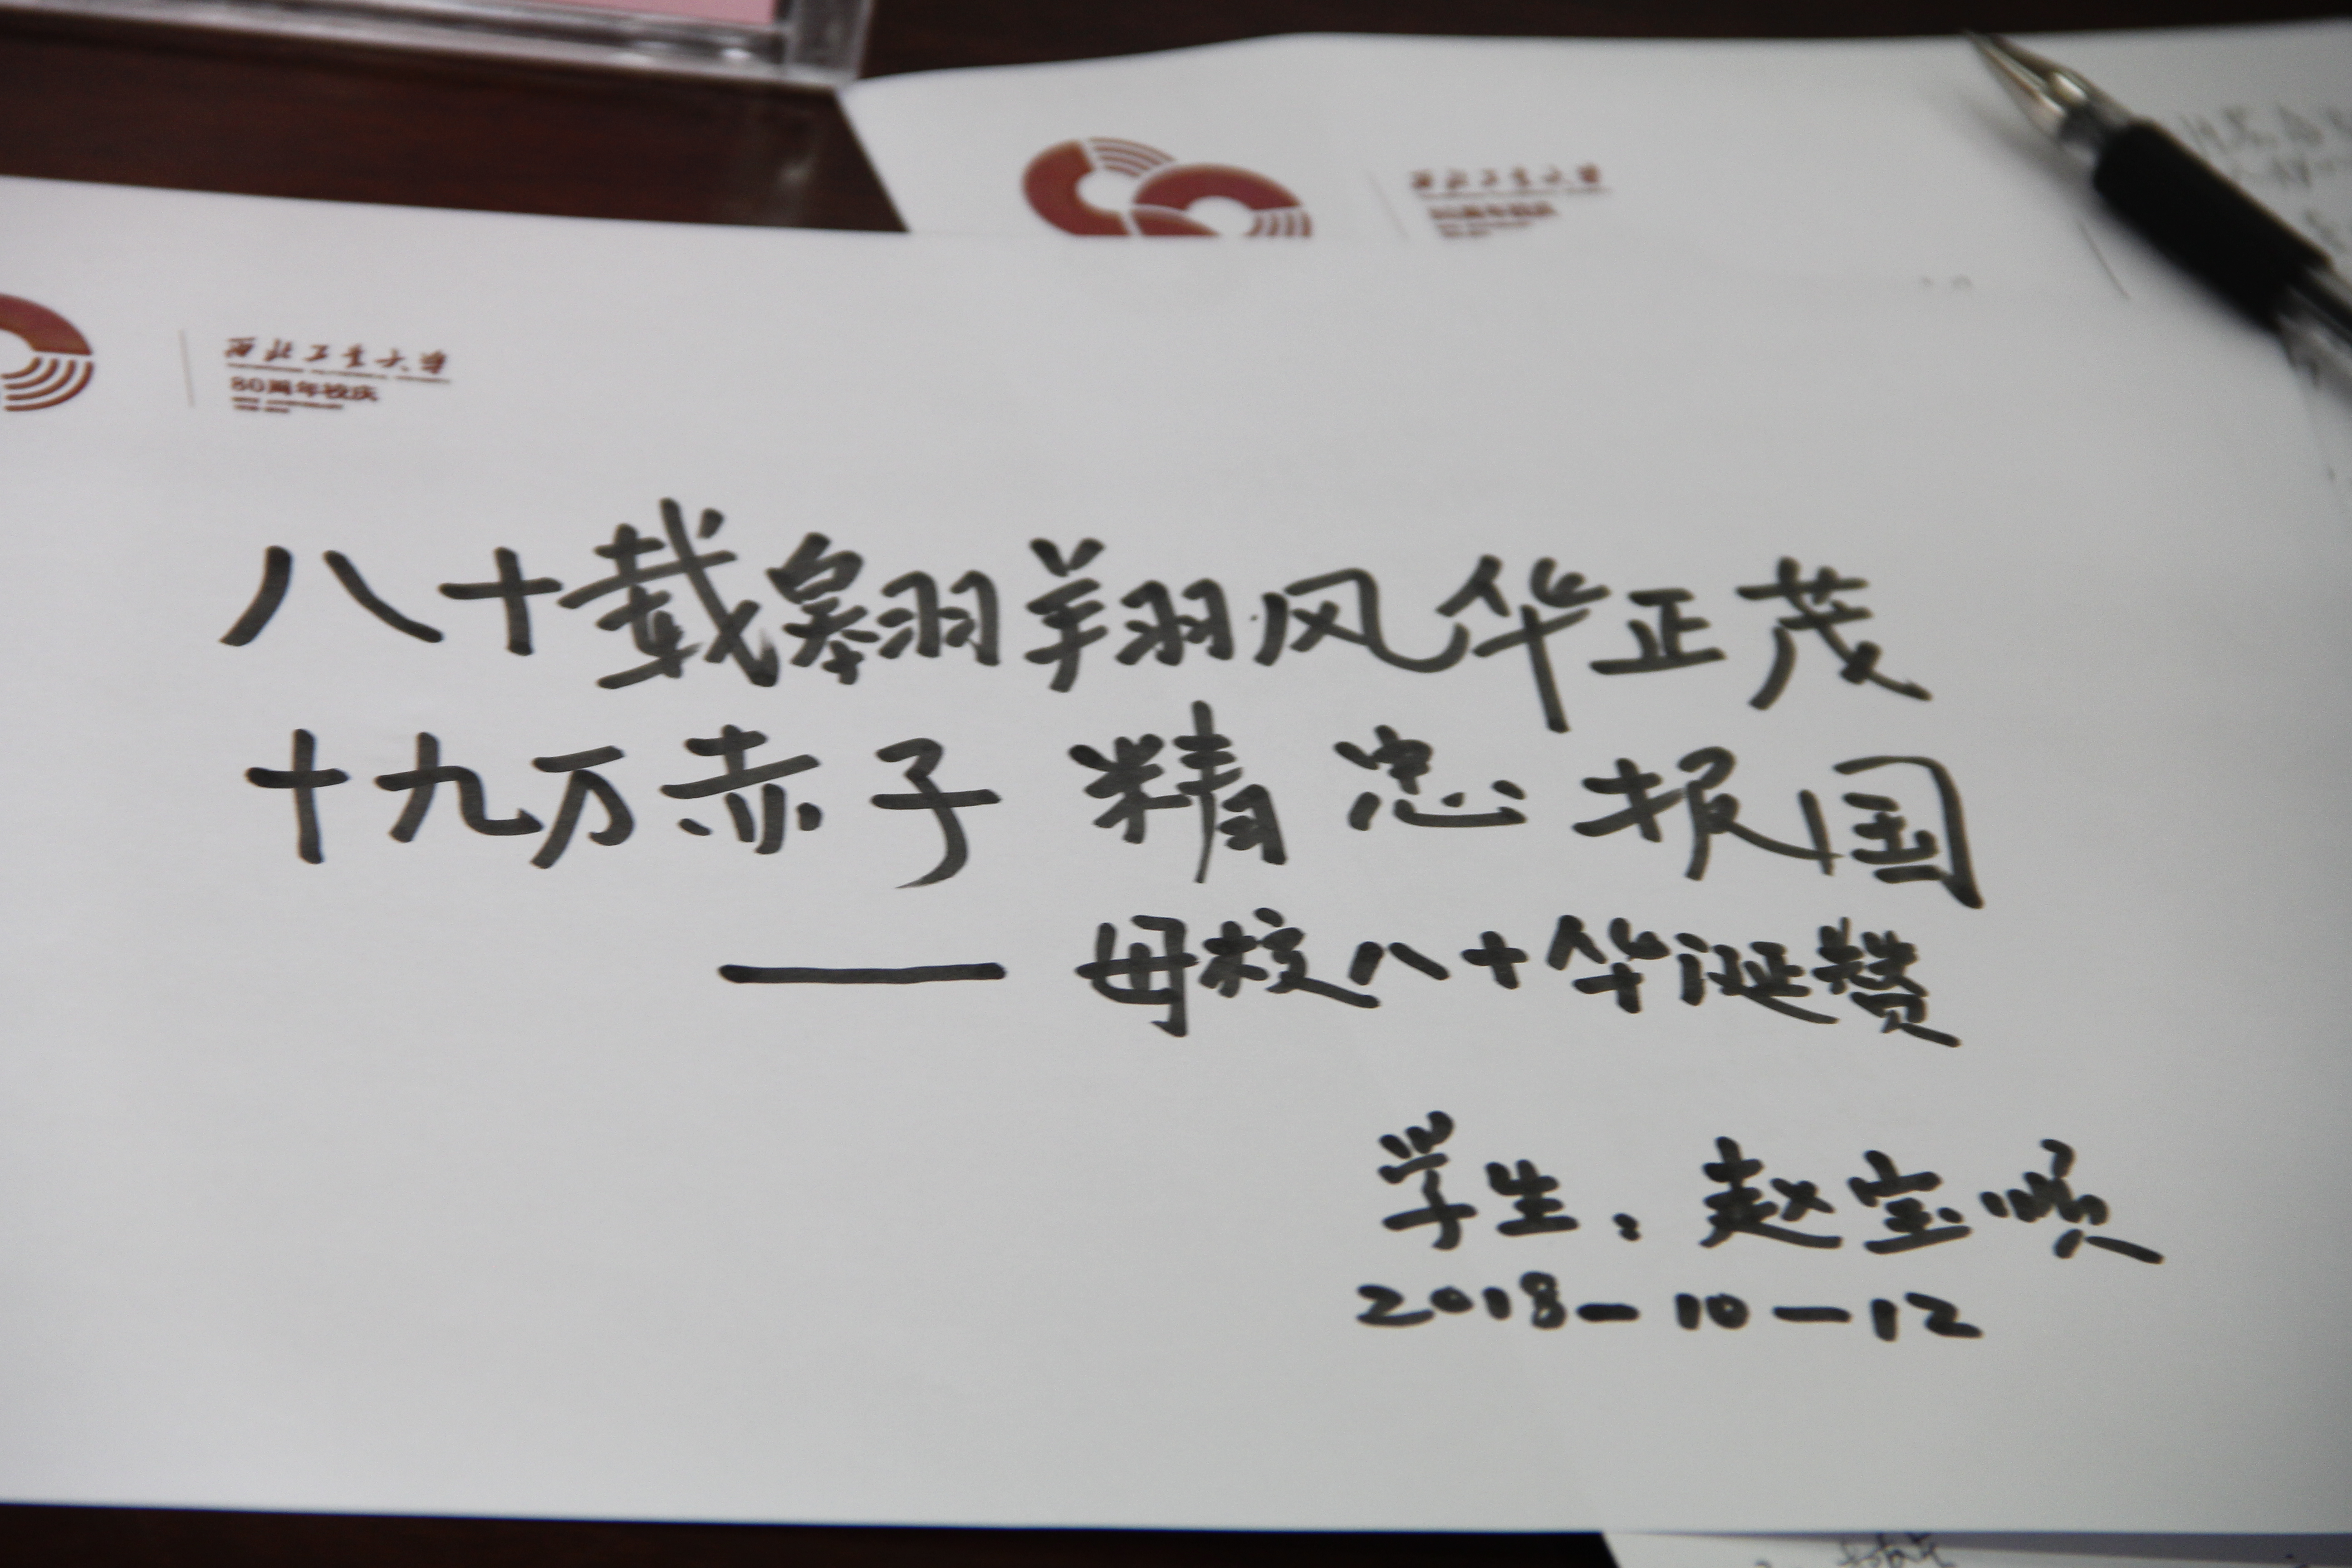 西北工业大学
西北工业大学
80周年校庆
八十载翱翔风华正茂
十九万赤子精忠报国
—— 母校八十华诞赞
学生:赵宝顺
2018-10-12